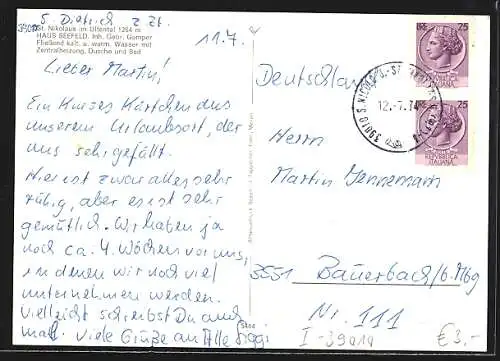 S. Dietrich z. Zt.
39010 St. Nikolaus im Ultental 1264 m
HAUS SEEFELD. Inh. Gebr. Gamper
Fließend kalt. u. warm. Wasser mit
Zentralheizung, Dusche und Bad
11.7.
Lieber Martin!
Ein kurzes Kärtchen aus
unserem Urlaubsort, der
uns sehr gefällt.
Hier ist zwar alles sehr
ruhig, aber es ist sehr
gemütlich. Wir haben ja
noch ca. 4 Wochen vor uns,
in denen wir noch viel
unternehmen werden.
Vielleicht schreibst Du auch
mal. Viele Grüße an Alle Siggi
Deutschland
Herrn
Martin Jennemann
3551 Bauerbach/b. Mbg
Nr. 111
I-39010
€3,-
LIRE 25
REPUBBLICA
ITALIANA
25
REPUBBLICA
ITALIANA
39010 S. NICOLO
12.7.74